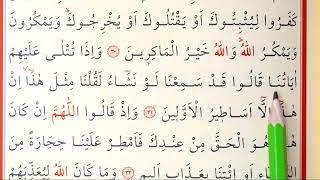 كَفَرُوا لِيُثْبِتُوكَ اَوْ يَقْتُلُوكَ اَوْ يُخْرِجُوكَ وَيَمْكُرُونَ
وَيَمْكُرُ اللّٰهُ وَاللّٰهُ خَيْرُ الْمَاكِرِينَ ﴿٣٠﴾ وَاِذَا تُتْلٰى عَلَيْهِمْ
اٰيَاتُنَا قَالُوا قَدْ سَمِعْنَا لَوْ نَشَٓاءُ لَقُلْنَا مِثْلَ هٰذَٓا اِنْ
هٰذَٓا اِلَّٓا اَسَاطِيرُ الْاَوَّلِينَ ﴿٣١﴾ وَاِذْ قَالُوا اللّٰهُمَّ
هُوَ الْحَقَّ مِنْ عِنْدِكَ فَاَمْطِرْ عَلَيْنَا حِجَارَةً مِنَ
اَوِ ائْتِنَا بِعَذَابٍ اَلِيمٍ ﴿٣٢﴾ وَمَا كَانَ اللّٰهُ لِيُعَذِّبَهُمْ